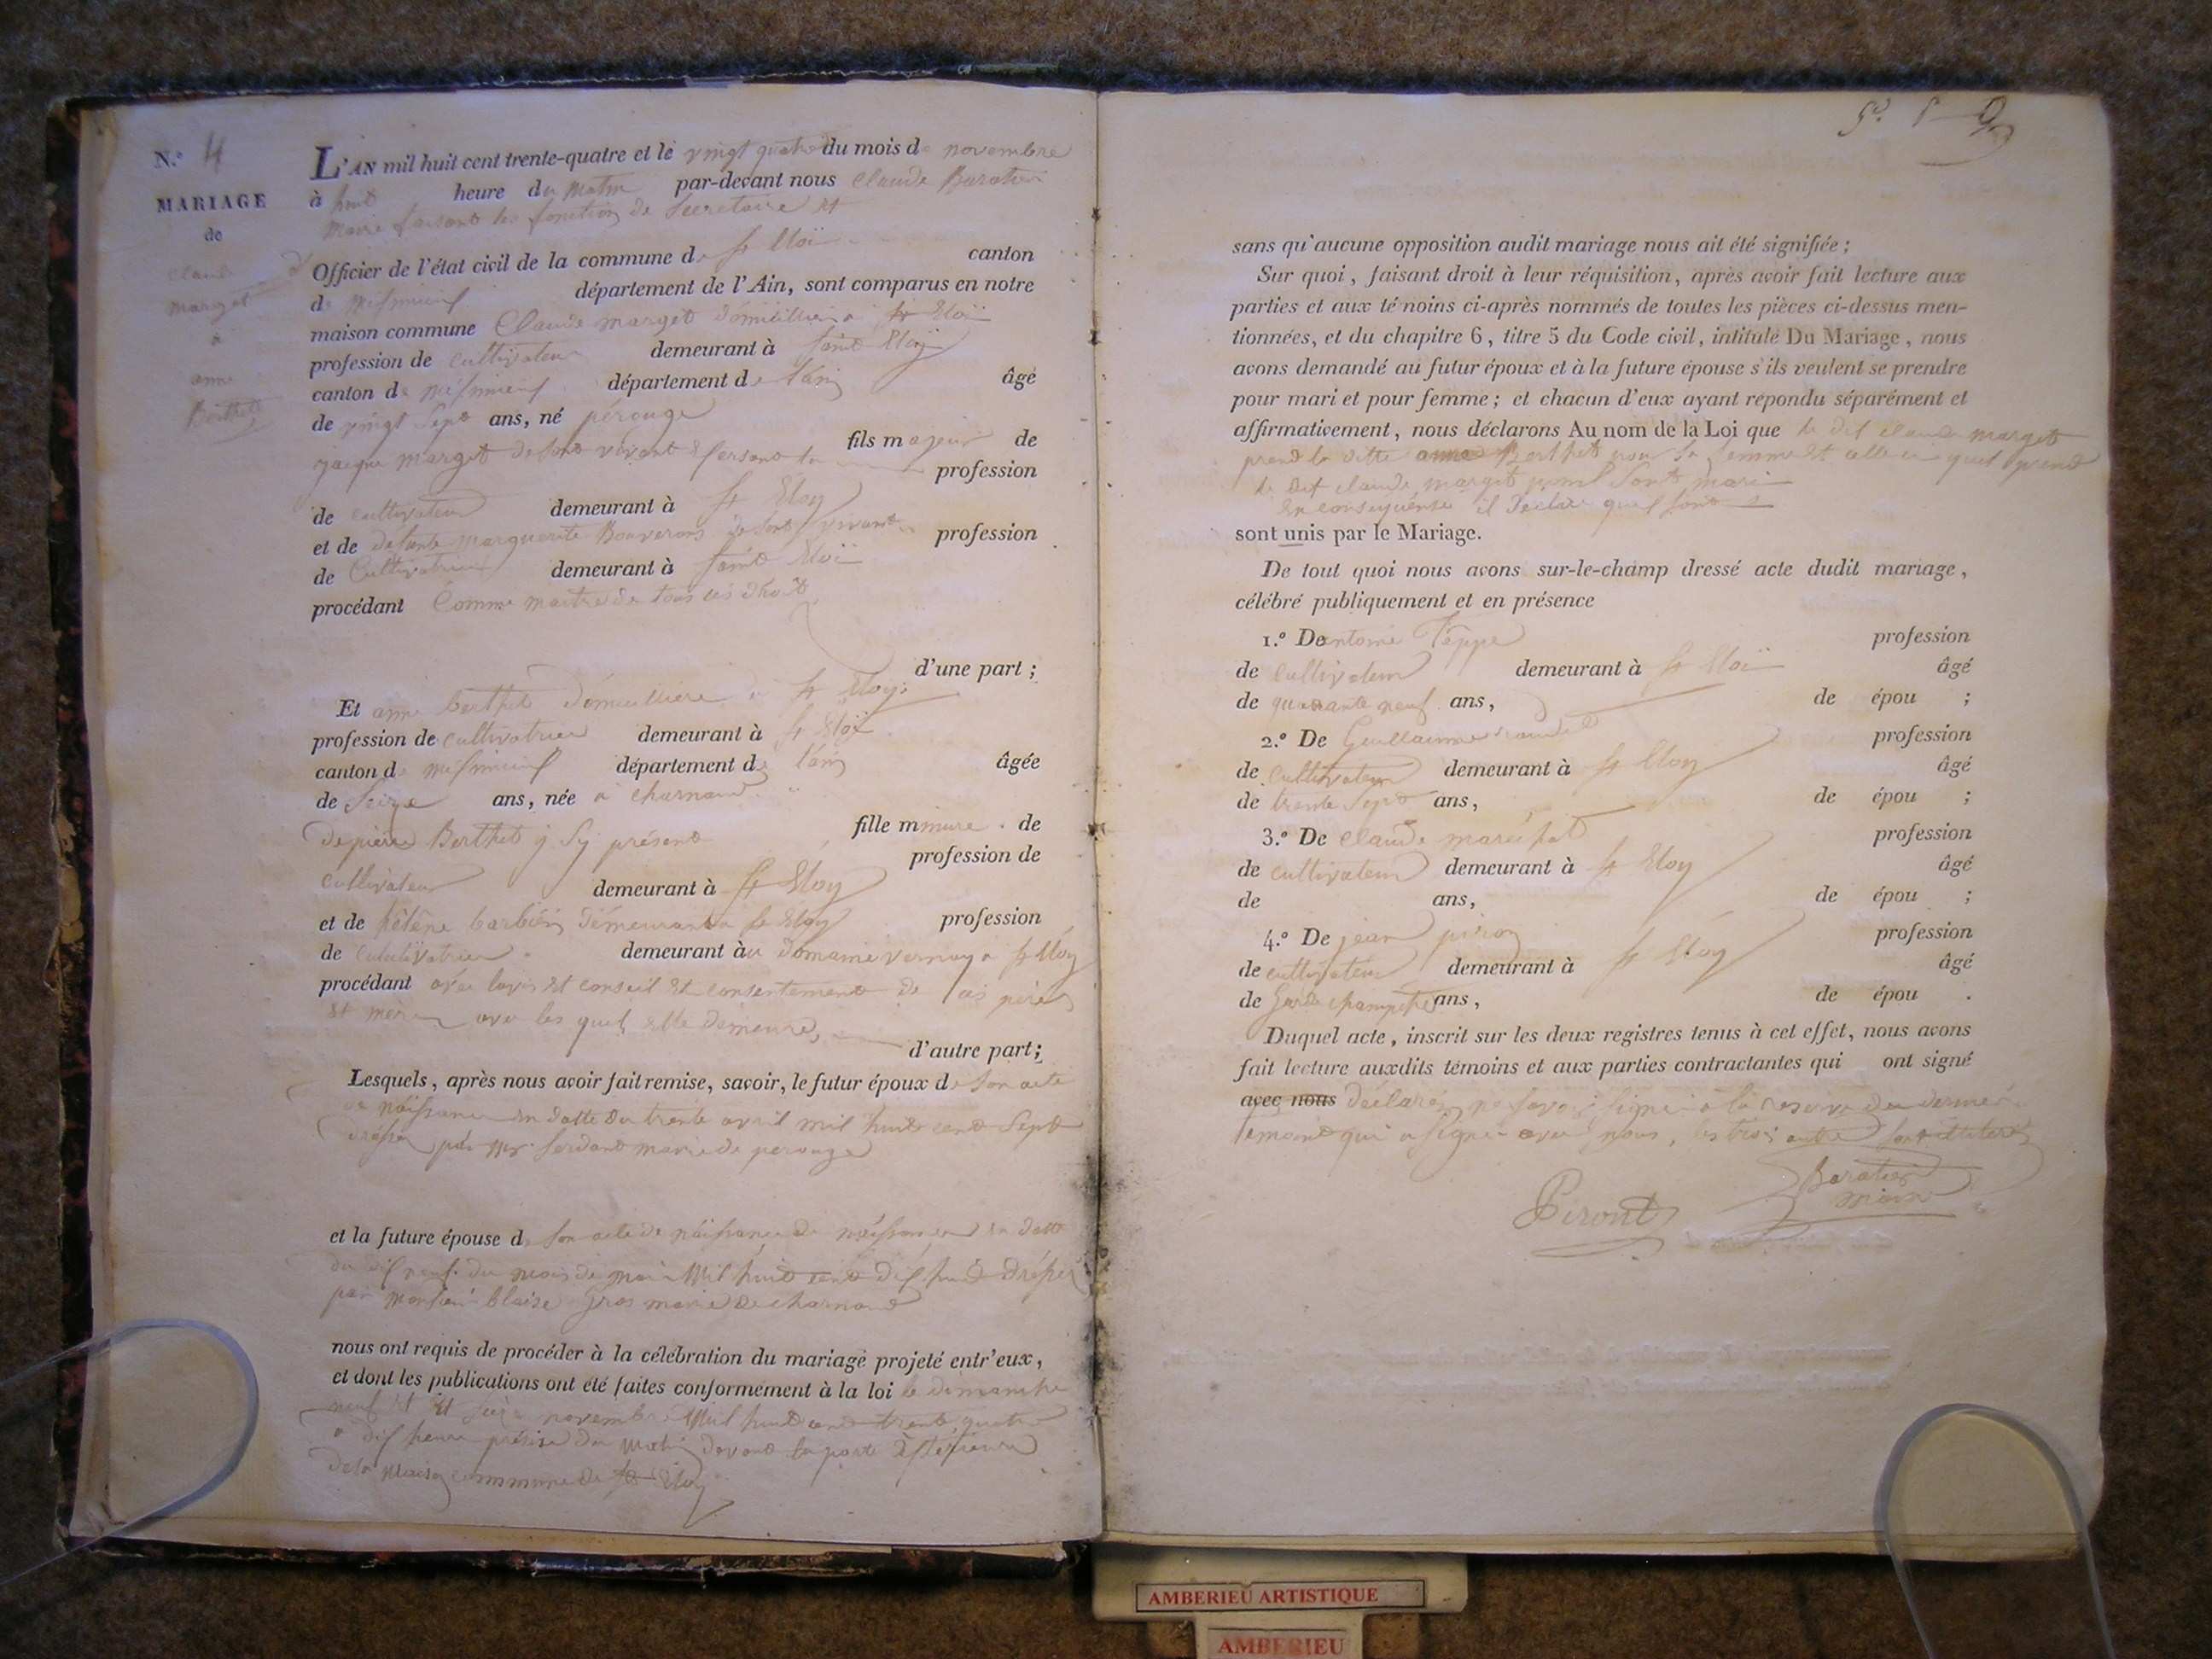 N.o 4
MARIAGE
de
Claude
marget
à
anne
Berthet
L'AN mil huit cent trente-quatre et le vingt quatre du mois de novembre
à huit heure du matin par-devant nous Claude Baratier
maire faisant les fonction de Secretaire et
Officier de l'état civil de la commune de St Eloi canton
de Mesimieux département de l'Ain, sont comparus en notre
maison commune Claude marget domicillier a St Eloi
profession de cultivateur demeurant à saint Eloy
canton de mésimieux département de l'ain âgé
de vingt Sept ans, né pérouge
fils majeur de
jacque marget de sont vivant profession
de cultivateur demeurant à St Eloy
et de defunte marguerite de sont vivant profession
de Cultivatrice demeurant à saint Eloi
procédant Comme maitre de tous ses droit
d'une part ;
Et anne berthet domicilliere a St Eloy
profession de cultivatrice demeurant à St Eloi
canton de mésimieux département de l'ain âgée
de Seize ans, née a charnoud
fille mineure de
de pierre Berthet présent profession de
cultivateur demeurant à St Eloy
et de hélène barbier demeurant a St Eloy profession
de cultivatrice demeurant à au Domaine vernay a St Eloy
procédant avec lavis et conseil et consentement de ses père
et mère avec les quel elle demeure,
d'autre part;
Lesquels, après nous avoir fait remise, savoir, le futur époux de Son acte
de naissance en datte du trente avril mil huit cent Sept
drésser par Mr maire de perouge
et la future épouse de Son acte de naissance de naissance en datte
du dix neuf du mois de mai Mil huit cent dix huit drésser
par Monsieur blaise Gros maire de charnoud
nous ont requis de procéder à la célébration du mariage projeté entr'eux,
et dont les publications ont été faites conformément à la loi le dimanche
neuf et seize novembre Mil huit cent trente quatre
a dix heure précise du matin devant la porte
de la Maison commune de St Eloy
sans qu'aucune opposition audit mariage nous ait été signifiée ;
Sur quoi, faisant droit à leur réquisition, après avoir fait lecture aux
parties et aux témoins ci-après nommés de toutes les pièces ci-dessus men-
tionnées, et du chapitre 6, titre 5 du Code civil, intitulé Du Mariage, nous
avons demandé au futur époux et à la future épouse s'ils veulent se prendre
pour mari et pour femme; et chacun d'eux ayant répondu séparément et
affirmativement, nous déclarons Au nom de la Loi que le dit claude marget
prend la ditte anne Berthet pour Sa femme et prend
le dit claude marget pour Sont mari
en conséquense il déclare quel sont
sont unis par le Mariage.
De tout quoi nous avons sur-le-champ dressé acte dudit mariage,
célébré publiquement et en présence
1.o De antoine Teppe profession
de cultivateur demeurant à St Eloi âgé
de quarante neuf ans, de épou ;
2.o De Guillaume profession
de cultivateur demeurant à St Eloy âgé
de trente Sept ans, de épou ;
3.o De Claude maréchal profession
de cultivateur demeurant à St Eloy âgé
de ans, de épou ;
4.o De jean piron profession
de cultivateur demeurant à St Eloy âgé
de Garde champetre ans, de épou .
Duquel acte, inscrit sur les deux registres tenus à cet effet, nous avons
fait lecture auxdits témoins et aux parties contractantes qui ont signé
avec nous déclaré ne savoir signer à la reserve du dernié
témoint qui a signé avec nous, les trois autre
Baratier
maire
Piront
AMBERIEU ARTISTIQUE
AMBERIEU